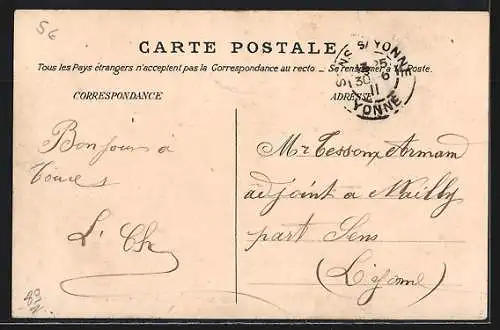 56
CARTE POSTALE
Tous les Pays étrangers n'acceptent pas la Correspondance au recto _ Se renseigner à la Poste.
CORRESPONDANCE
ADRESSE
SENS S/YONNE
30 6
11
YONNE
Bonjour à
Toutes
L. Ch
Mr Tessons Armand
adjoint a Mailly
part Sens
(L'yonne)